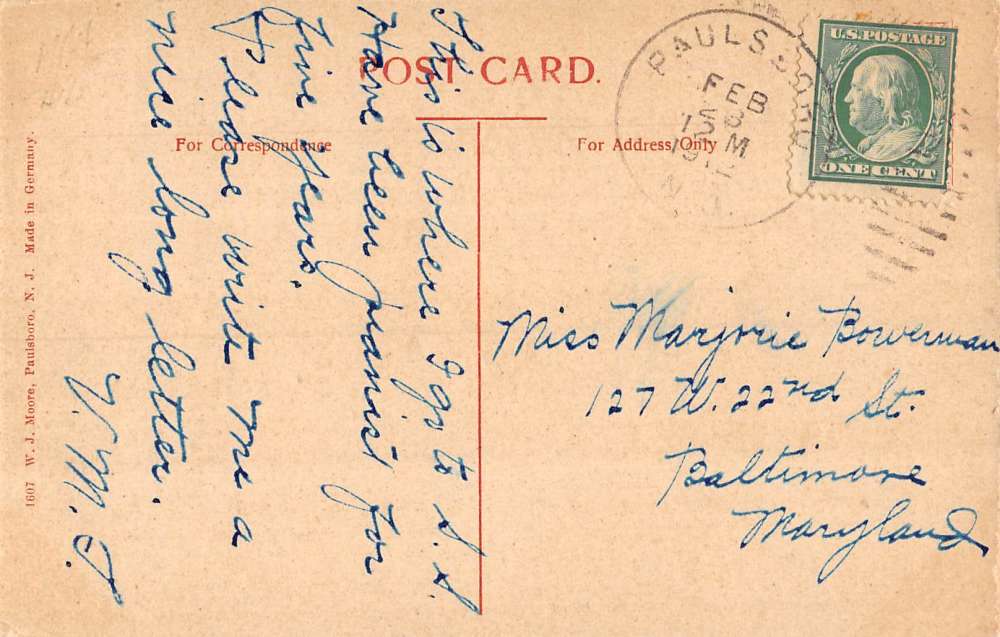 POST CARD.
For Correspondence
For Address Only
PAULSBORO
FEB
8
15 M
19
U.S. POSTAGE
ONE CENT
This is where I go to S.S.
Have been pianist for
five years.
Please write me a
nice long letter.
V. M. J.
Miss Marjorie Bowerman
127 W. 22nd St.
Baltimore
Maryland
1607 W. J. Moore, Paulsboro, N. J. Made in Germany.